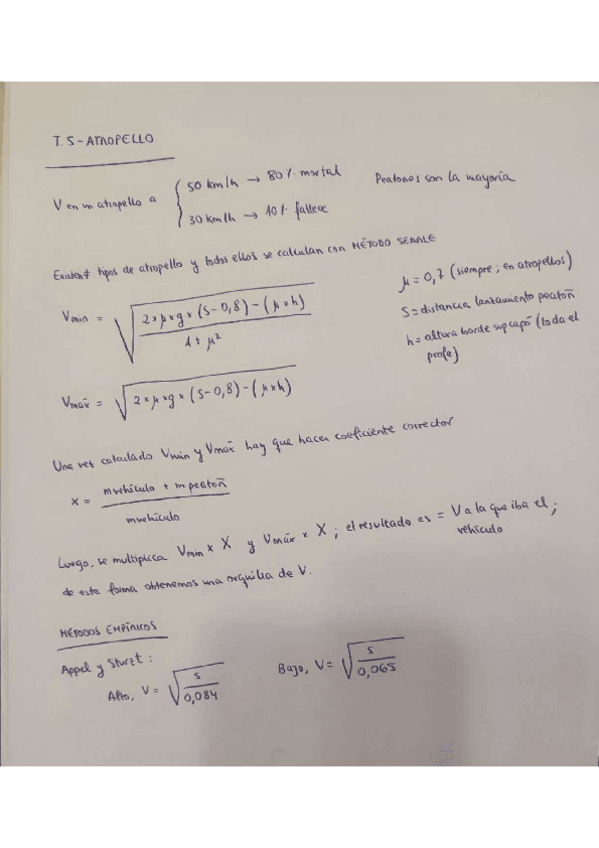 T.5-ATROPELLO
V en un atropello a { 50 km/h → 80% mortal
30 km/h → 10% fallece
Peatones son la mayoría
Existen 7 tipos de atropello y todos ellos se calculan con MÉTODO SEARLE
Vmin = √((2×μ×g×(S-0,8)-(μ×h))/(1+μ²))
μ = 0,7 (siempre; en atropellos)
S = distancia lanzamiento peatón
h = altura borde sup capó (lo da el
profe)
Vmáx = √(2×μ×g×(S-0,8)-(μ×h))
Una vez calculado Vmin y Vmáx hay que hacer coeficiente corrector
X = (m vehículo + m peatón)/(m vehículo)
Luego, se multiplica Vmin × X y Vmáx × X; el resultado es = V a la que iba el;
vehículo
de esta forma obtenemos una orquilla de V.
MÉTODOS EMPÍRICOS
Appel y Sturzt:
Alto, V = √(S/0,084)
Bajo, V = √(S/0,065)